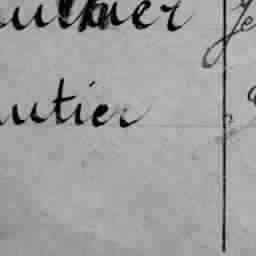 aulkner
autier